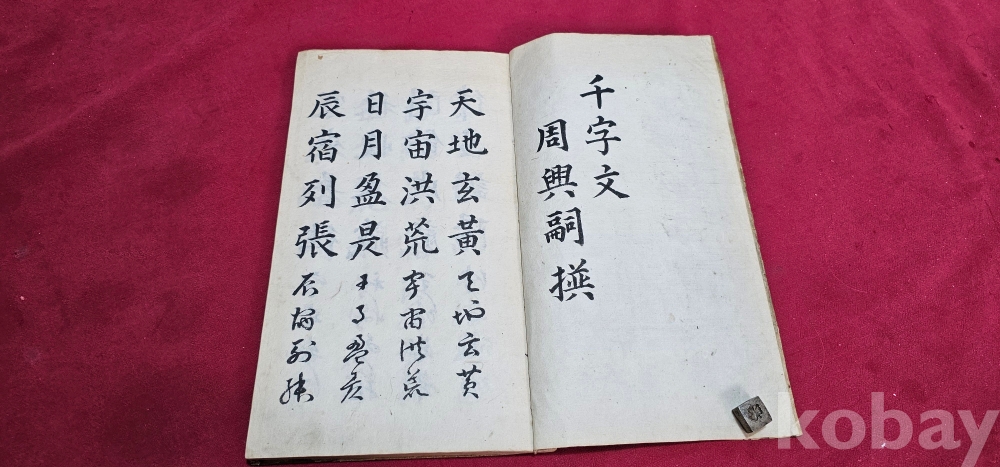 千字文
周興嗣撰
天地玄黃天地玄黃
宇宙洪荒宇宙洪荒
日月盈昃日月盈昃
辰宿列張辰宿列張
kobay